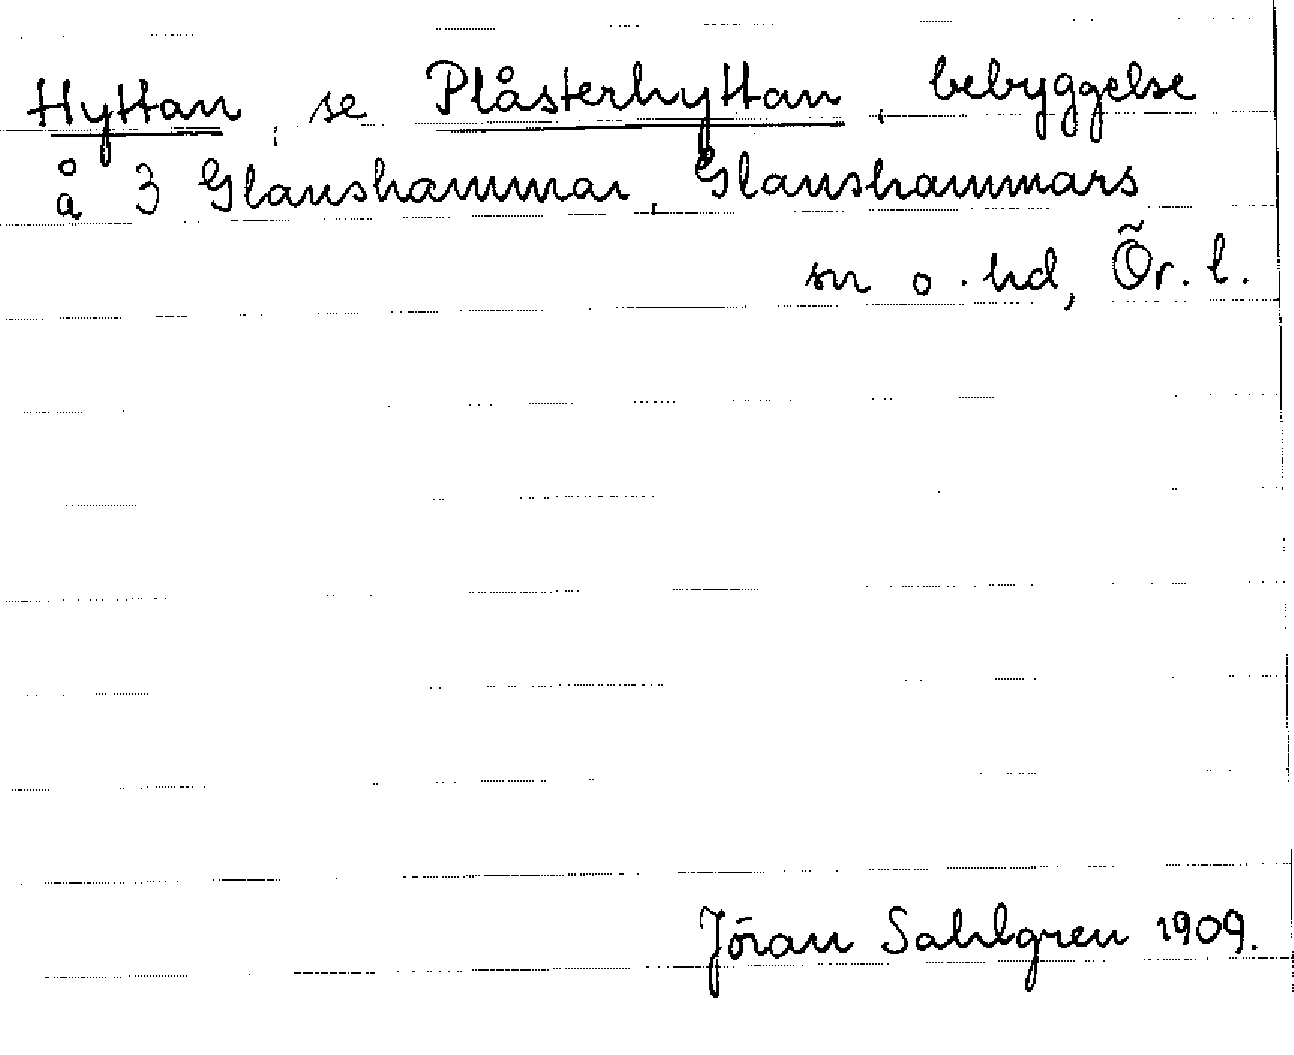 Hyttan, se Plåsterhyttan, bebyggelse
å 3 Glanshammar, Glanshammars
sn o. hd, Ör. l.
Jöran Sahlgren 1909.